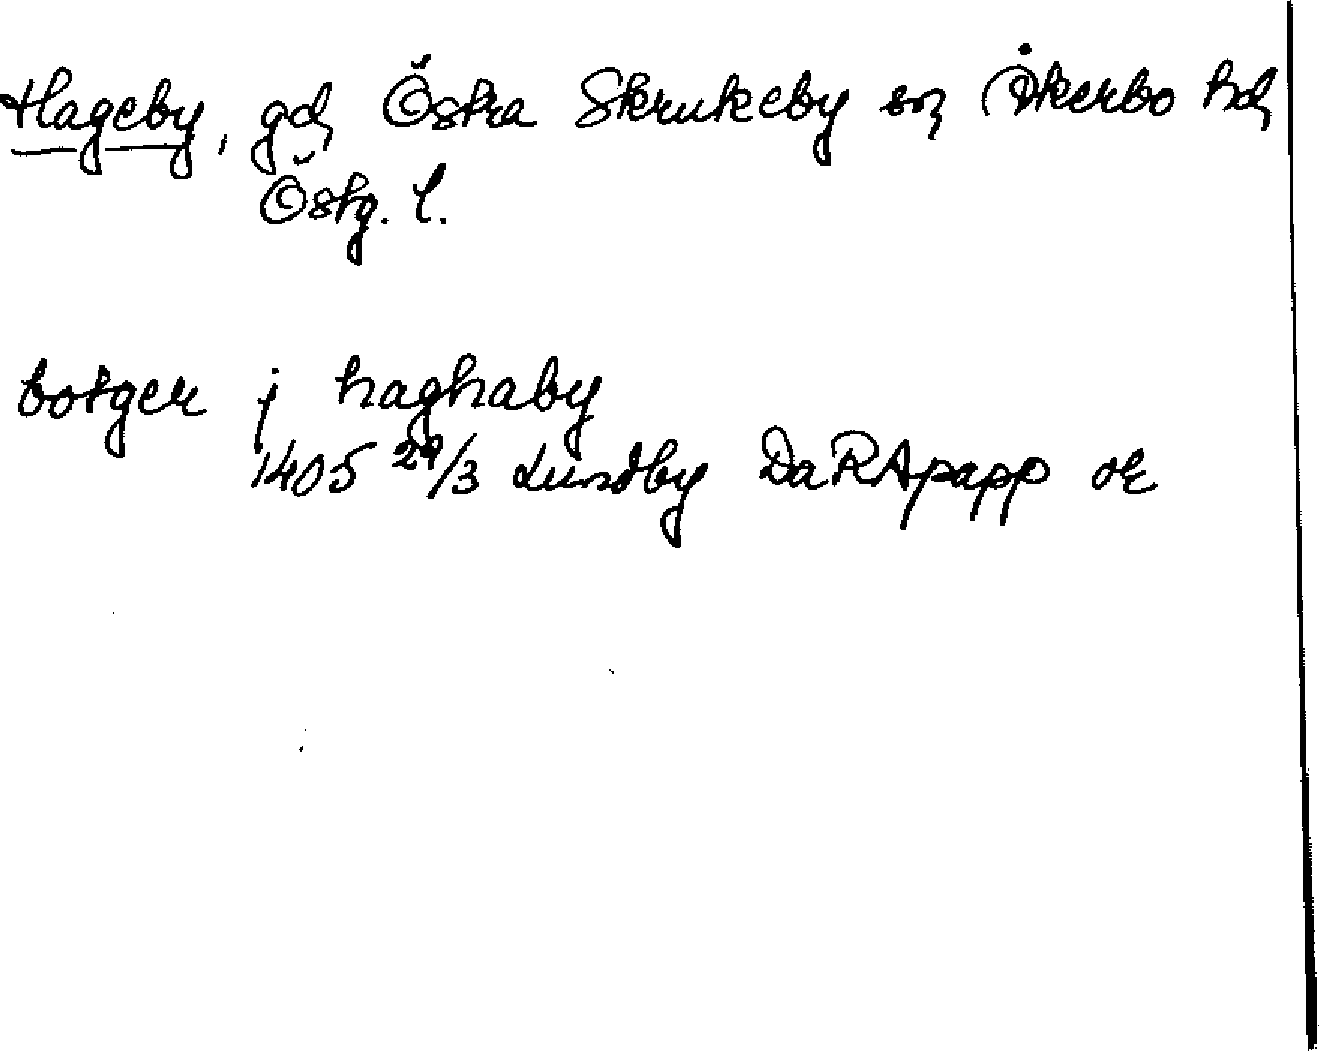 Hageby, gd Östra Skrukeby sn Åkerbo hd
Östg. l.
botger j haghaby
1405 29/3 Lundby DaRApapp or